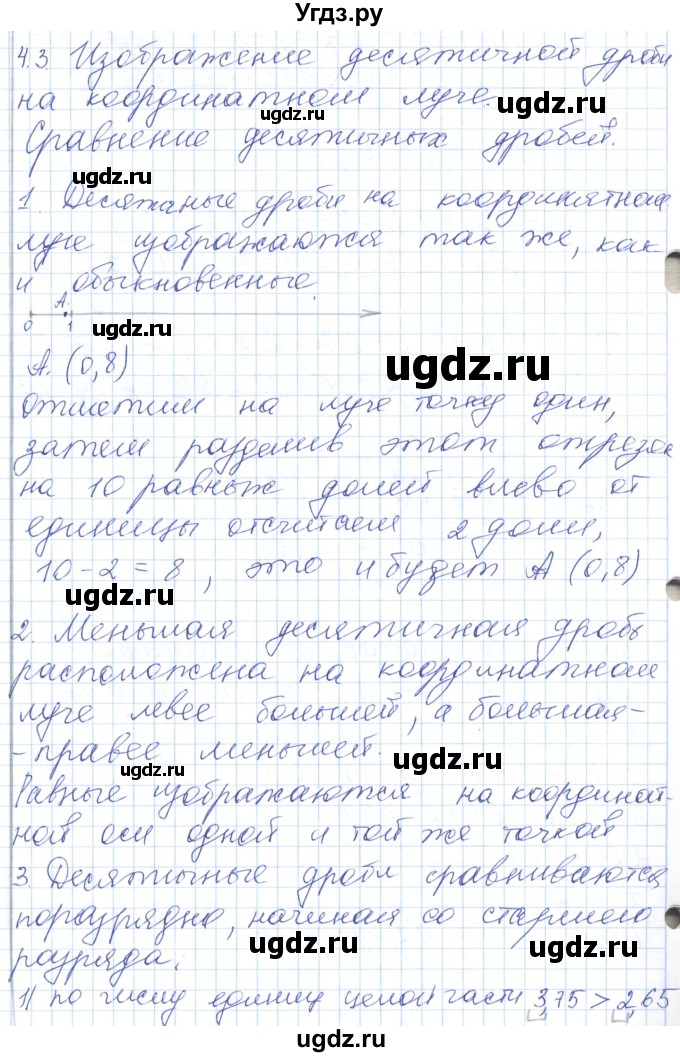 Угдз.ру
4.3. Изображение десятичной дроби
на координатном луче.
ugdz.ru
ugdz.ru
Сравнение десятичных дробей.
ugdz.ru
1. Десятичные дроби на координатном
луче изображаются так же, как
и обыкновенные.
A
0 1
ugdz.ru
ugdz.ru
А. (0,8)
Отметим на луче точку один,
затем разделив этот отрезок
на 10 равных долей влево от
единицы отсчитаем 2 доли,
10-2=8, это и будет А (0,8)
ugdz.ru
2. Меньшая десятичная дробь
расположена на координатном
луче левее большей, а большая-
-правее меньшей.
ugdz.ru
ugdz.ru
Равные изображаются на координат-
ной оси одной и той же точкой
3. Десятичные дроби сравниваются
поразрядно, начиная со старшего
ugdz.ru
разряда.
1) по числу единиц целой части 3,75 > 2,65